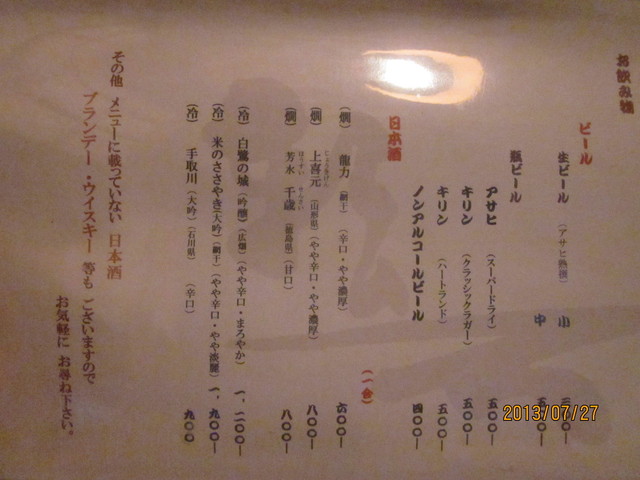 お飲み物
ビール
生ビール (アサヒ熟撰) 小 三〇〇ー
中 五〇〇ー
瓶ビール
アサヒ (スーパードライ) 五〇〇ー
キリン (クラッシックラガー) 五〇〇ー
キリン (ハートランド) 五〇〇ー
ノンアルコールビール 四〇〇ー
日本酒 (一合)
(燗) 龍力 (網干) (辛口・やや濃厚) 六〇〇ー
(燗) 上喜元 じょうきげん (山形県) (やや辛口・やや濃厚) 八〇〇ー
(燗) 芳水 千歳 ほうすい せんざい (徳島県) (甘口) 八〇〇ー
(冷) 白鷺の城 (吟醸) (広畑) (やや辛口・まろやか) 一、二〇〇ー
(冷) 米のささやき (大吟) (網干) (やや辛口・やや淡麗) 一、九〇〇ー
(冷) 手取川 (大吟) (石川県) (辛口) 九〇〇
その他 メニューに載っていない 日本酒
ブランデー・ウイスキー 等も ございますので
お気軽に お尋ね下さい。
2013/07/27